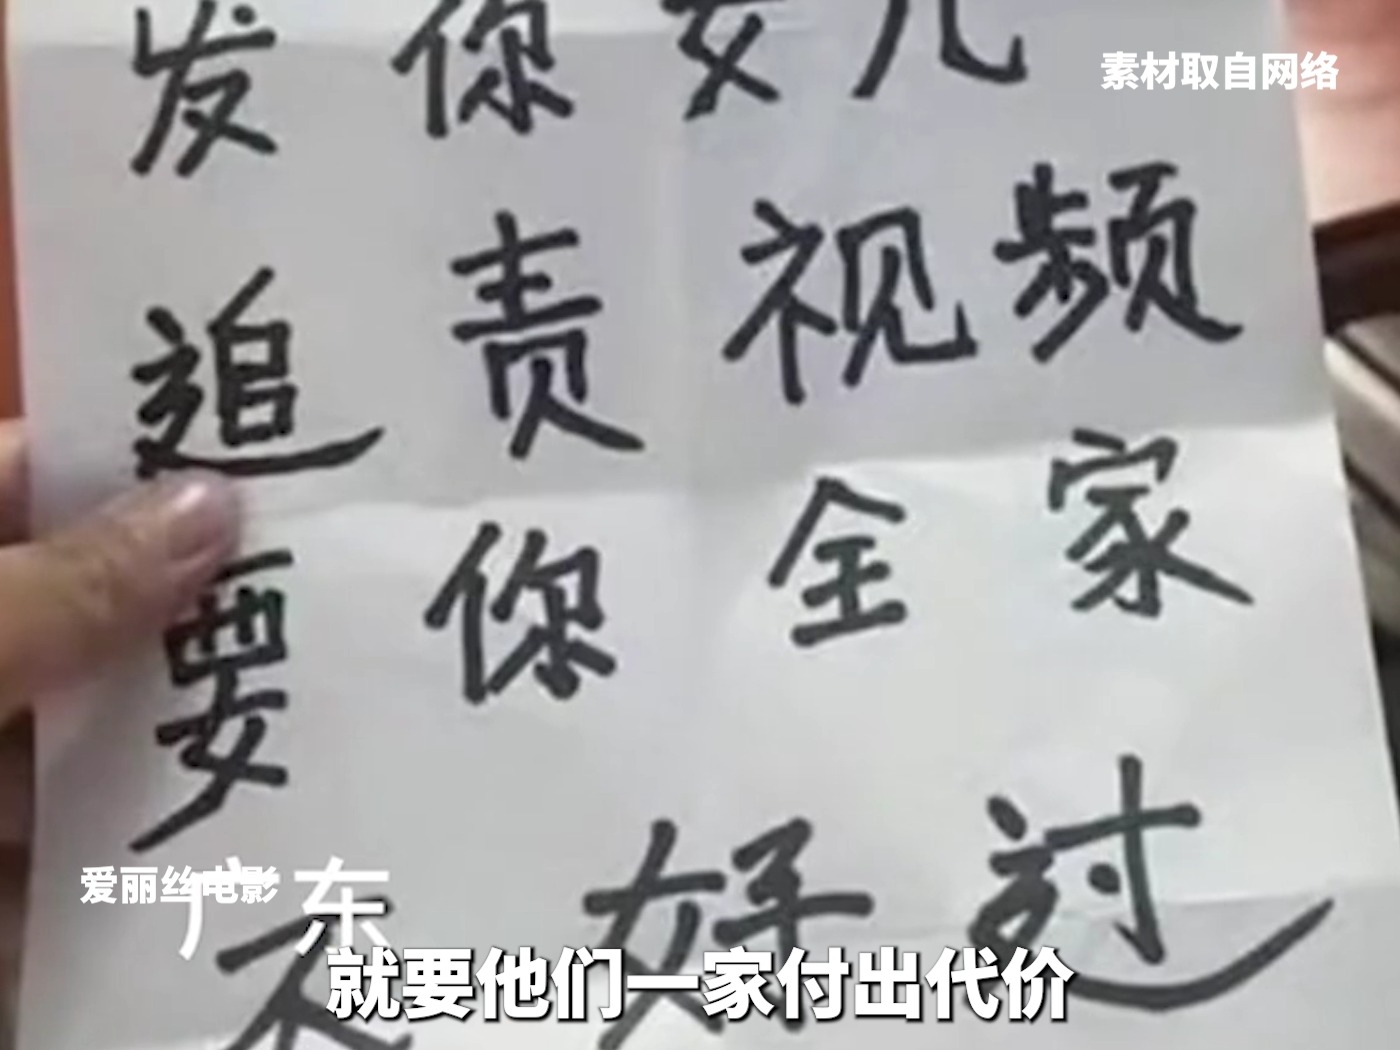 发你女儿
素材取自网络
追责视频
要你全家
不好过
爱丽丝电影
广东
就要他们一家付出代价